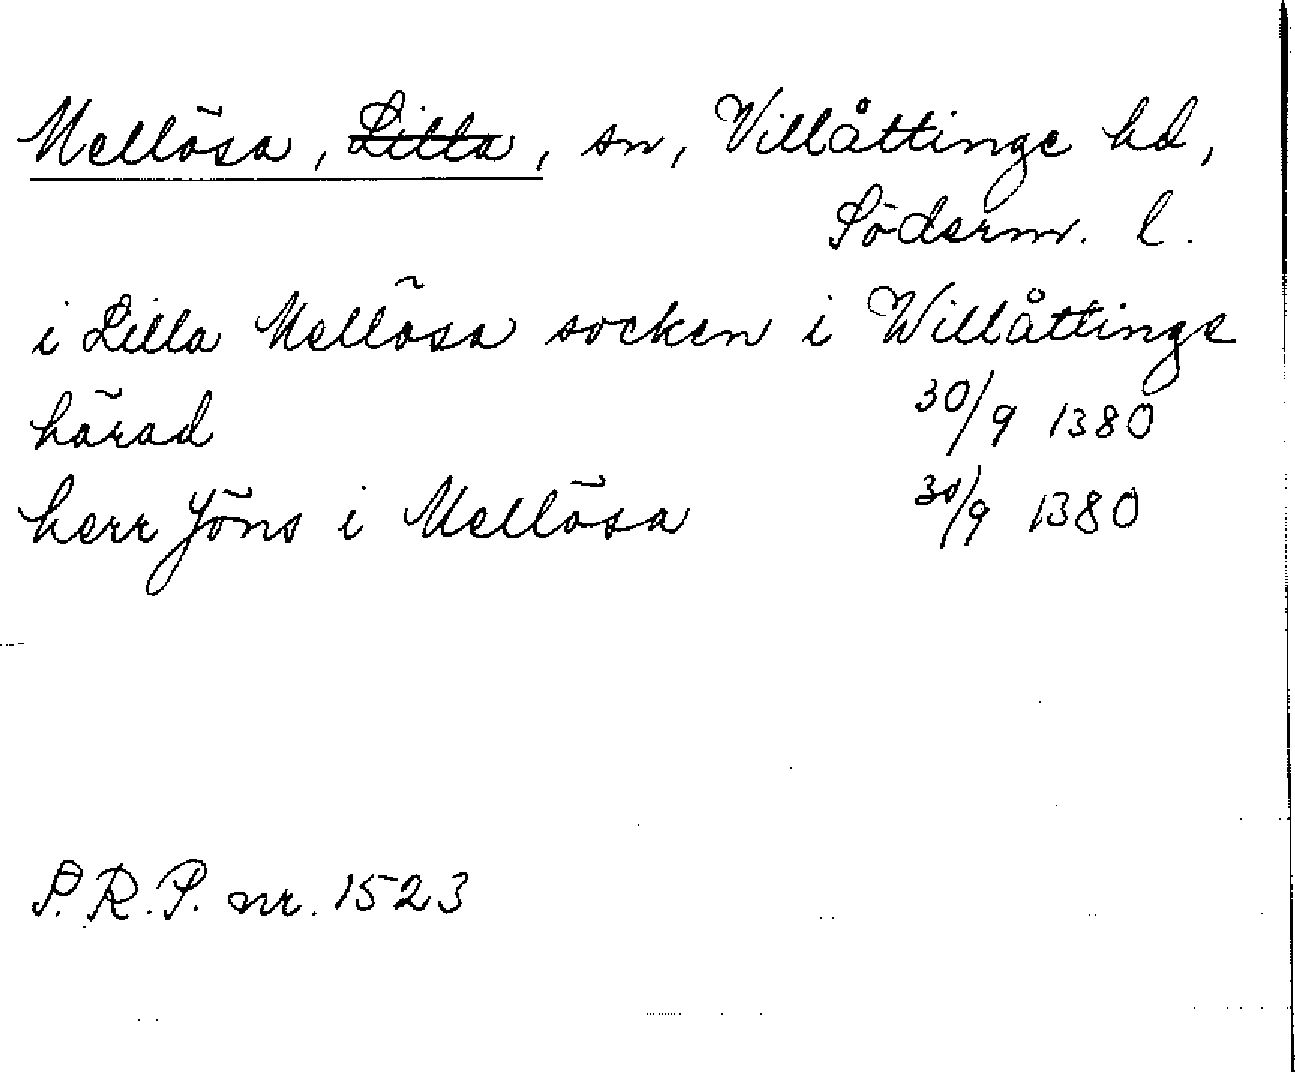 Mellösa, Lilla, sn, Villåttinge hd,
Söderm. l.
i Lilla Mellösa socken i Willåttinge
härad 30/9 1380
herr Jöns i Mellösa 30/9 1380
S.R.P. nr. 1523